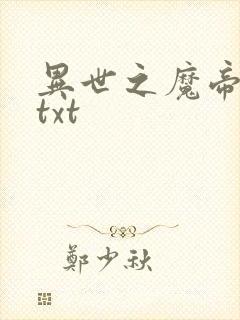 異世之魔帝
txt
鄭少秋